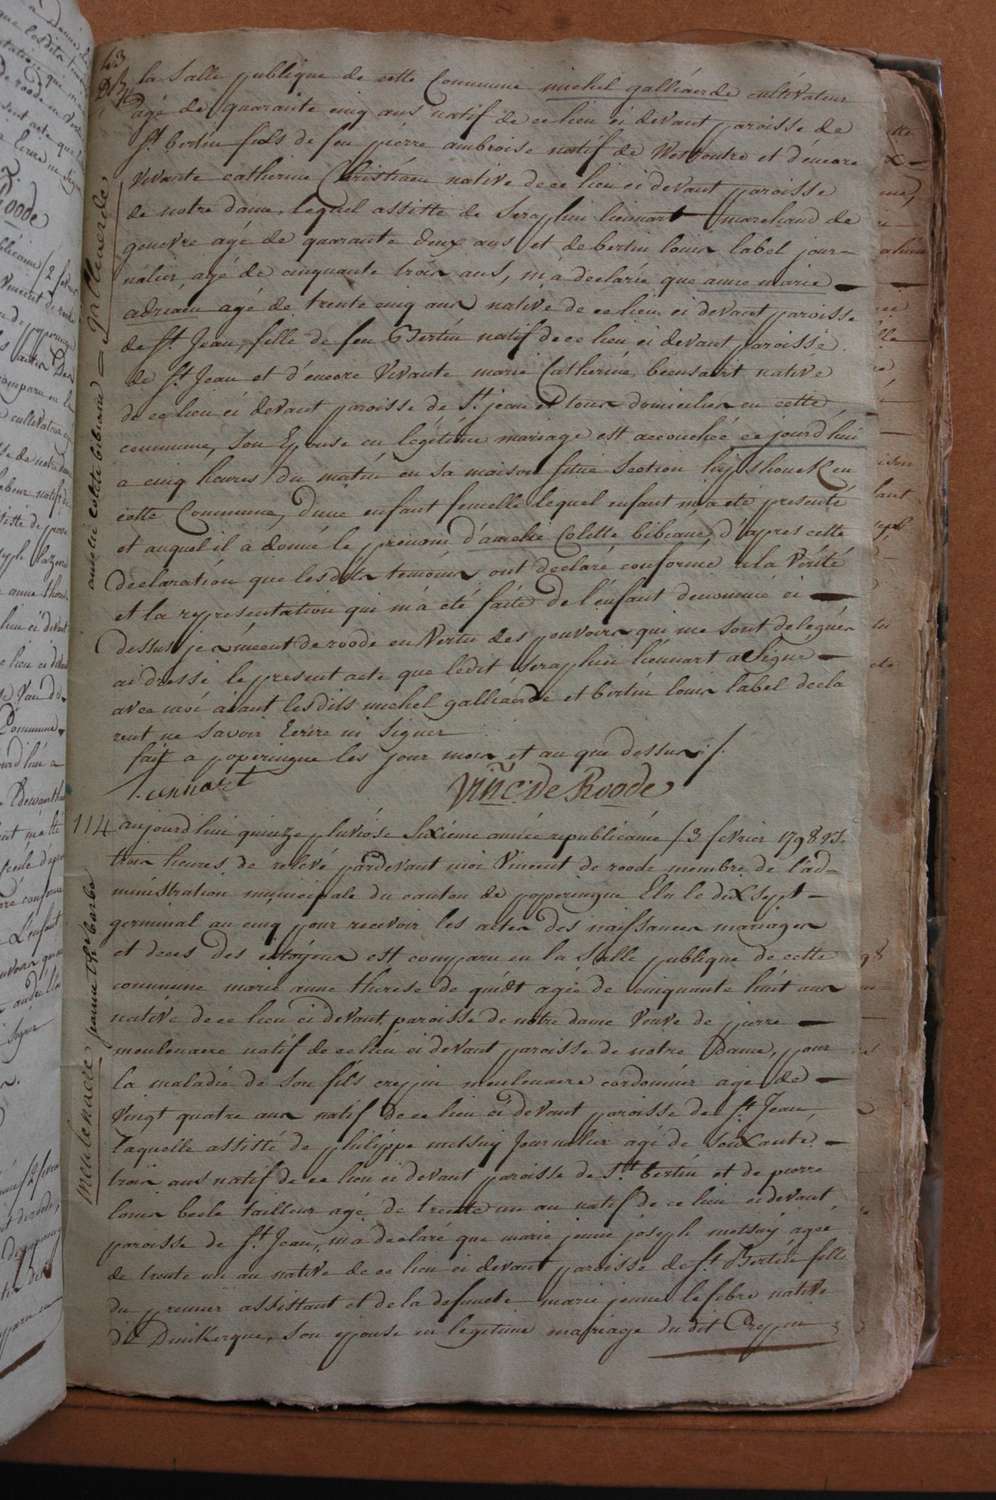 la salle publique de cette Commune michel galliaerde cultivateur
agé de quarante cinq ans natif de ce lieu ci devant paroisse de
St. bertin fils de feu pierre ambroise natif de Westoutre et d'encore
vivante catherine Christiaen native de ce lieu ci devant paroisse
de notre dame, lequel assisté de Seraphin liennart marchand de
genevre agé de quarante deux ans et de bertin louis label jour-
nalier, agé de cinquante trois ans, m'a declarée que anne marie
adriaen agé de trente cinq ans native de ce lieu ci devant paroisse
de St Jean, fille de feu Bertin natif de ce lieu ci devant paroisse
de St Jean et d'encore Vivante marie Catherine beensaert native
de ce lieu ci devant paroisse de St. jean et tous domiciliés en cette
commune, son Epouse en legitime mariage est accouchée ce jourd'hui
a cinq heures du matin en sa maison situé Section hipshouck en
cette Commune, d'une enfant femelle lequel enfant m'a été presenté
et auquel il a donné le prenom d'amelie Colette bibiane, d'apres cette
declaration que les dits temoins ont declaré conforme a la Vérité
et la representation qui m'a été faite de l'enfant denommé ci
dessus je vincent de roode en Vertu des pouvoirs qui me sont delegués
ai dressé le present acte que ledit seraphin liennart a Signé
avec moi aiant les dits michel galliaerde et bertin louis label decla
rent ne Savoir Ecrire ni Signer
fait a poperingue les jour mois et an que dessus ./.
Lennart Vinc: De Roode
114 aujourd'hui quinze pluviose Sixieme année republicaine /3 fevrier 1798 V.S.
trois heures de relevé pardevant moi Vincent de roode membre de l'ad-
ministration municipale du canton de popperingue Elu le dix sept
germinal an cinq pour recevoir les actes des naissances mariages
et deces des citoyens est comparu en la Salle publique de cette
commune marie anne therese de quidt agée de cinquante huit ans
native de ce lieu ci devant paroisse de notre dame Veuve de pierre
meulenaere natif de ce lieu ci devant paroisse de notre Dame, pour
la maladie de Son fils crepin meulenaere cordonnier agé de
Vingt quatre ans natif de ce lieu ci devant paroisse de St. Jean,
laquelle assisté de philippe metsuy Journalier agé de Soixante
trois ans natif de ce lieu ci devant paroisse de St. bertin et de pierre
louis becle tailleur agé de trente un an natif de ce lieu ci devant
paroisse de St. Jean, m'a declare que marie jenne joseph metsuy agée
de trente un an native de ce lieu ci devant paroisse de St. Bertin fille
du premier assistant et de la defuncte marie jenne lefebre native
de Dunkerque, Son epouse en legitime mariage du dit Crepin
amelie colette bibiane
galliaerde,
meulenaere,